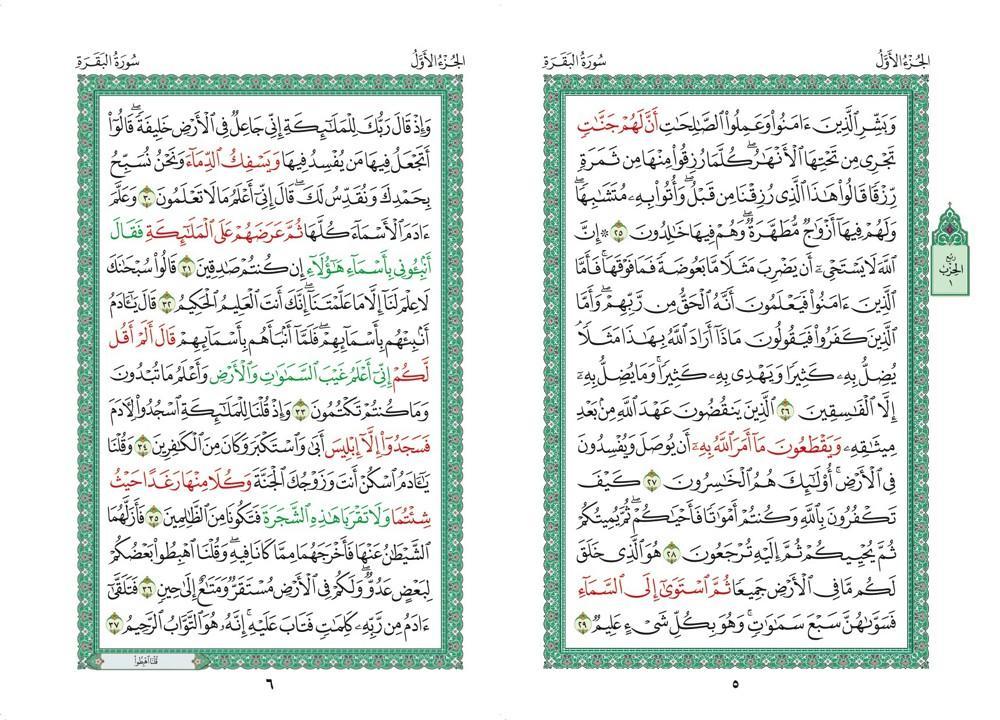 الجُزْءُ الأَوَّلُ
سُورَةُ البَقَرَةِ
وَبَشِّرِ ٱلَّذِينَ ءَامَنُوا۟ وَعَمِلُوا۟ ٱلصَّٰلِحَٰتِ أَنَّ لَهُمْ جَنَّٰتٍ
تَجْرِى مِن تَحْتِهَا ٱلْأَنْهَٰرُ ۖ كُلَّمَا رُزِقُوا۟ مِنْهَا مِن ثَمَرَةٍ
رِّزْقًا قَالُوا۟ هَٰذَا ٱلَّذِى رُزِقْنَا مِن قَبْلُ ۖ وَأُتُوا۟ بِهِۦ مُتَشَٰبِهًا ۖ
وَلَهُمْ فِيهَآ أَزْوَٰجٌ مُّطَهَّرَةٌ ۖ وَهُمْ فِيهَا خَٰلِدُونَ ٢٥ ۞ إِنَّ
ٱللَّهَ لَا يَسْتَحْىِۦٓ أَن يَضْرِبَ مَثَلًا مَّا بَعُوضَةً فَمَا فَوْقَهَا ۚ فَأَمَّا
ٱلَّذِينَ ءَامَنُوا۟ فَيَعْلَمُونَ أَنَّهُ ٱلْحَقُّ مِن رَّبِّهِمْ ۖ وَأَمَّا
ٱلَّذِينَ كَفَرُوا۟ فَيَقُولُونَ مَاذَآ أَرَادَ ٱللَّهُ بِهَٰذَا مَثَلًا ۘ
يُضِلُّ بِهِۦ كَثِيرًا وَيَهْدِى بِهِۦ كَثِيرًا ۚ وَمَا يُضِلُّ بِهِۦٓ
إِلَّا ٱلْفَٰسِقِينَ ٢٦ ٱلَّذِينَ يَنقُضُونَ عَهْدَ ٱللَّهِ مِنۢ بَعْدِ
مِيثَٰقِهِۦ وَيَقْطَعُونَ مَآ أَمَرَ ٱللَّهُ بِهِۦٓ أَن يُوصَلَ وَيُفْسِدُونَ
فِى ٱلْأَرْضِ ۚ أُو۟لَٰٓئِكَ هُمُ ٱلْخَٰسِرُونَ ٢٧ كَيْفَ
تَكْفُرُونَ بِٱللَّهِ وَكُنتُمْ أَمْوَٰتًا فَأَحْيَٰكُمْ ۖ ثُمَّ يُمِيتُكُمْ
ثُمَّ يُحْيِيكُمْ ثُمَّ إِلَيْهِ تُرْجَعُونَ ٢٨ هُوَ ٱلَّذِى خَلَقَ
لَكُم مَّا فِى ٱلْأَرْضِ جَمِيعًا ثُمَّ ٱسْتَوَىٰٓ إِلَى ٱلسَّمَآءِ
فَسَوَّىٰهُنَّ سَبْعَ سَمَٰوَٰتٍ ۚ وَهُوَ بِكُلِّ شَىْءٍ عَلِيمٌ ٢٩
رُبْعُ
الحِزْبِ
١
٥
الجُزْءُ الأَوَّلُ
سُورَةُ البَقَرَةِ
وَإِذْ قَالَ رَبُّكَ لِلْمَلَٰٓئِكَةِ إِنِّى جَاعِلٌ فِى ٱلْأَرْضِ خَلِيفَةً ۖ قَالُوٓا۟
أَتَجْعَلُ فِيهَا مَن يُفْسِدُ فِيهَا وَيَسْفِكُ ٱلدِّمَآءَ وَنَحْنُ نُسَبِّحُ
بِحَمْدِكَ وَنُقَدِّسُ لَكَ ۖ قَالَ إِنِّىٓ أَعْلَمُ مَا لَا تَعْلَمُونَ ٣٠ وَعَلَّمَ
ءَادَمَ ٱلْأَسْمَآءَ كُلَّهَا ثُمَّ عَرَضَهُمْ عَلَى ٱلْمَلَٰٓئِكَةِ فَقَالَ
أَنۢبِـُٔونِى بِأَسْمَآءِ هَٰٓؤُلَآءِ إِن كُنتُمْ صَٰدِقِينَ ٣١ قَالُوا۟ سُبْحَٰنَكَ
لَا عِلْمَ لَنَآ إِلَّا مَا عَلَّمْتَنَآ ۖ إِنَّكَ أَنتَ ٱلْعَلِيمُ ٱلْحَكِيمُ ٣٢ قَالَ يَٰٓـَٔادَمُ
أَنۢبِئْهُم بِأَسْمَآئِهِمْ ۖ فَلَمَّآ أَنۢبَأَهُم بِأَسْمَآئِهِمْ قَالَ أَلَمْ أَقُل
لَّكُمْ إِنِّىٓ أَعْلَمُ غَيْبَ ٱلسَّمَٰوَٰتِ وَٱلْأَرْضِ وَأَعْلَمُ مَا تُبْدُونَ
وَمَا كُنتُمْ تَكْتُمُونَ ٣٣ وَإِذْ قُلْنَا لِلْمَلَٰٓئِكَةِ ٱسْجُدُوا۟ لِـَٔادَمَ
فَسَجَدُوٓا۟ إِلَّآ إِبْلِيسَ أَبَىٰ وَٱسْتَكْبَرَ وَكَانَ مِنَ ٱلْكَٰفِرِينَ ٣٤ وَقُلْنَا
يَٰٓـَٔادَمُ ٱسْكُنْ أَنتَ وَزَوْجُكَ ٱلْجَنَّةَ وَكُلَا مِنْهَا رَغَدًا حَيْثُ
شِئْتُمَا وَلَا تَقْرَبَا هَٰذِهِ ٱلشَّجَرَةَ فَتَكُونَا مِنَ ٱلظَّٰلِمِينَ ٣٥ فَأَزَلَّهُمَا
ٱلشَّيْطَٰنُ عَنْهَا فَأَخْرَجَهُمَا مِمَّا كَانَا فِيهِ ۖ وَقُلْنَا ٱهْبِطُوا۟ بَعْضُكُمْ
لِبَعْضٍ عَدُوٌّ ۖ وَلَكُمْ فِى ٱلْأَرْضِ مُسْتَقَرٌّ وَمَتَٰعٌ إِلَىٰ حِينٍ ٣٦ فَتَلَقَّىٰٓ
ءَادَمُ مِن رَّبِّهِۦ كَلِمَٰتٍ فَتَابَ عَلَيْهِ ۚ إِنَّهُۥ هُوَ ٱلتَّوَّابُ ٱلرَّحِيمُ ٣٧
قُلْنَا ٱهْبِطُوا۟
٦